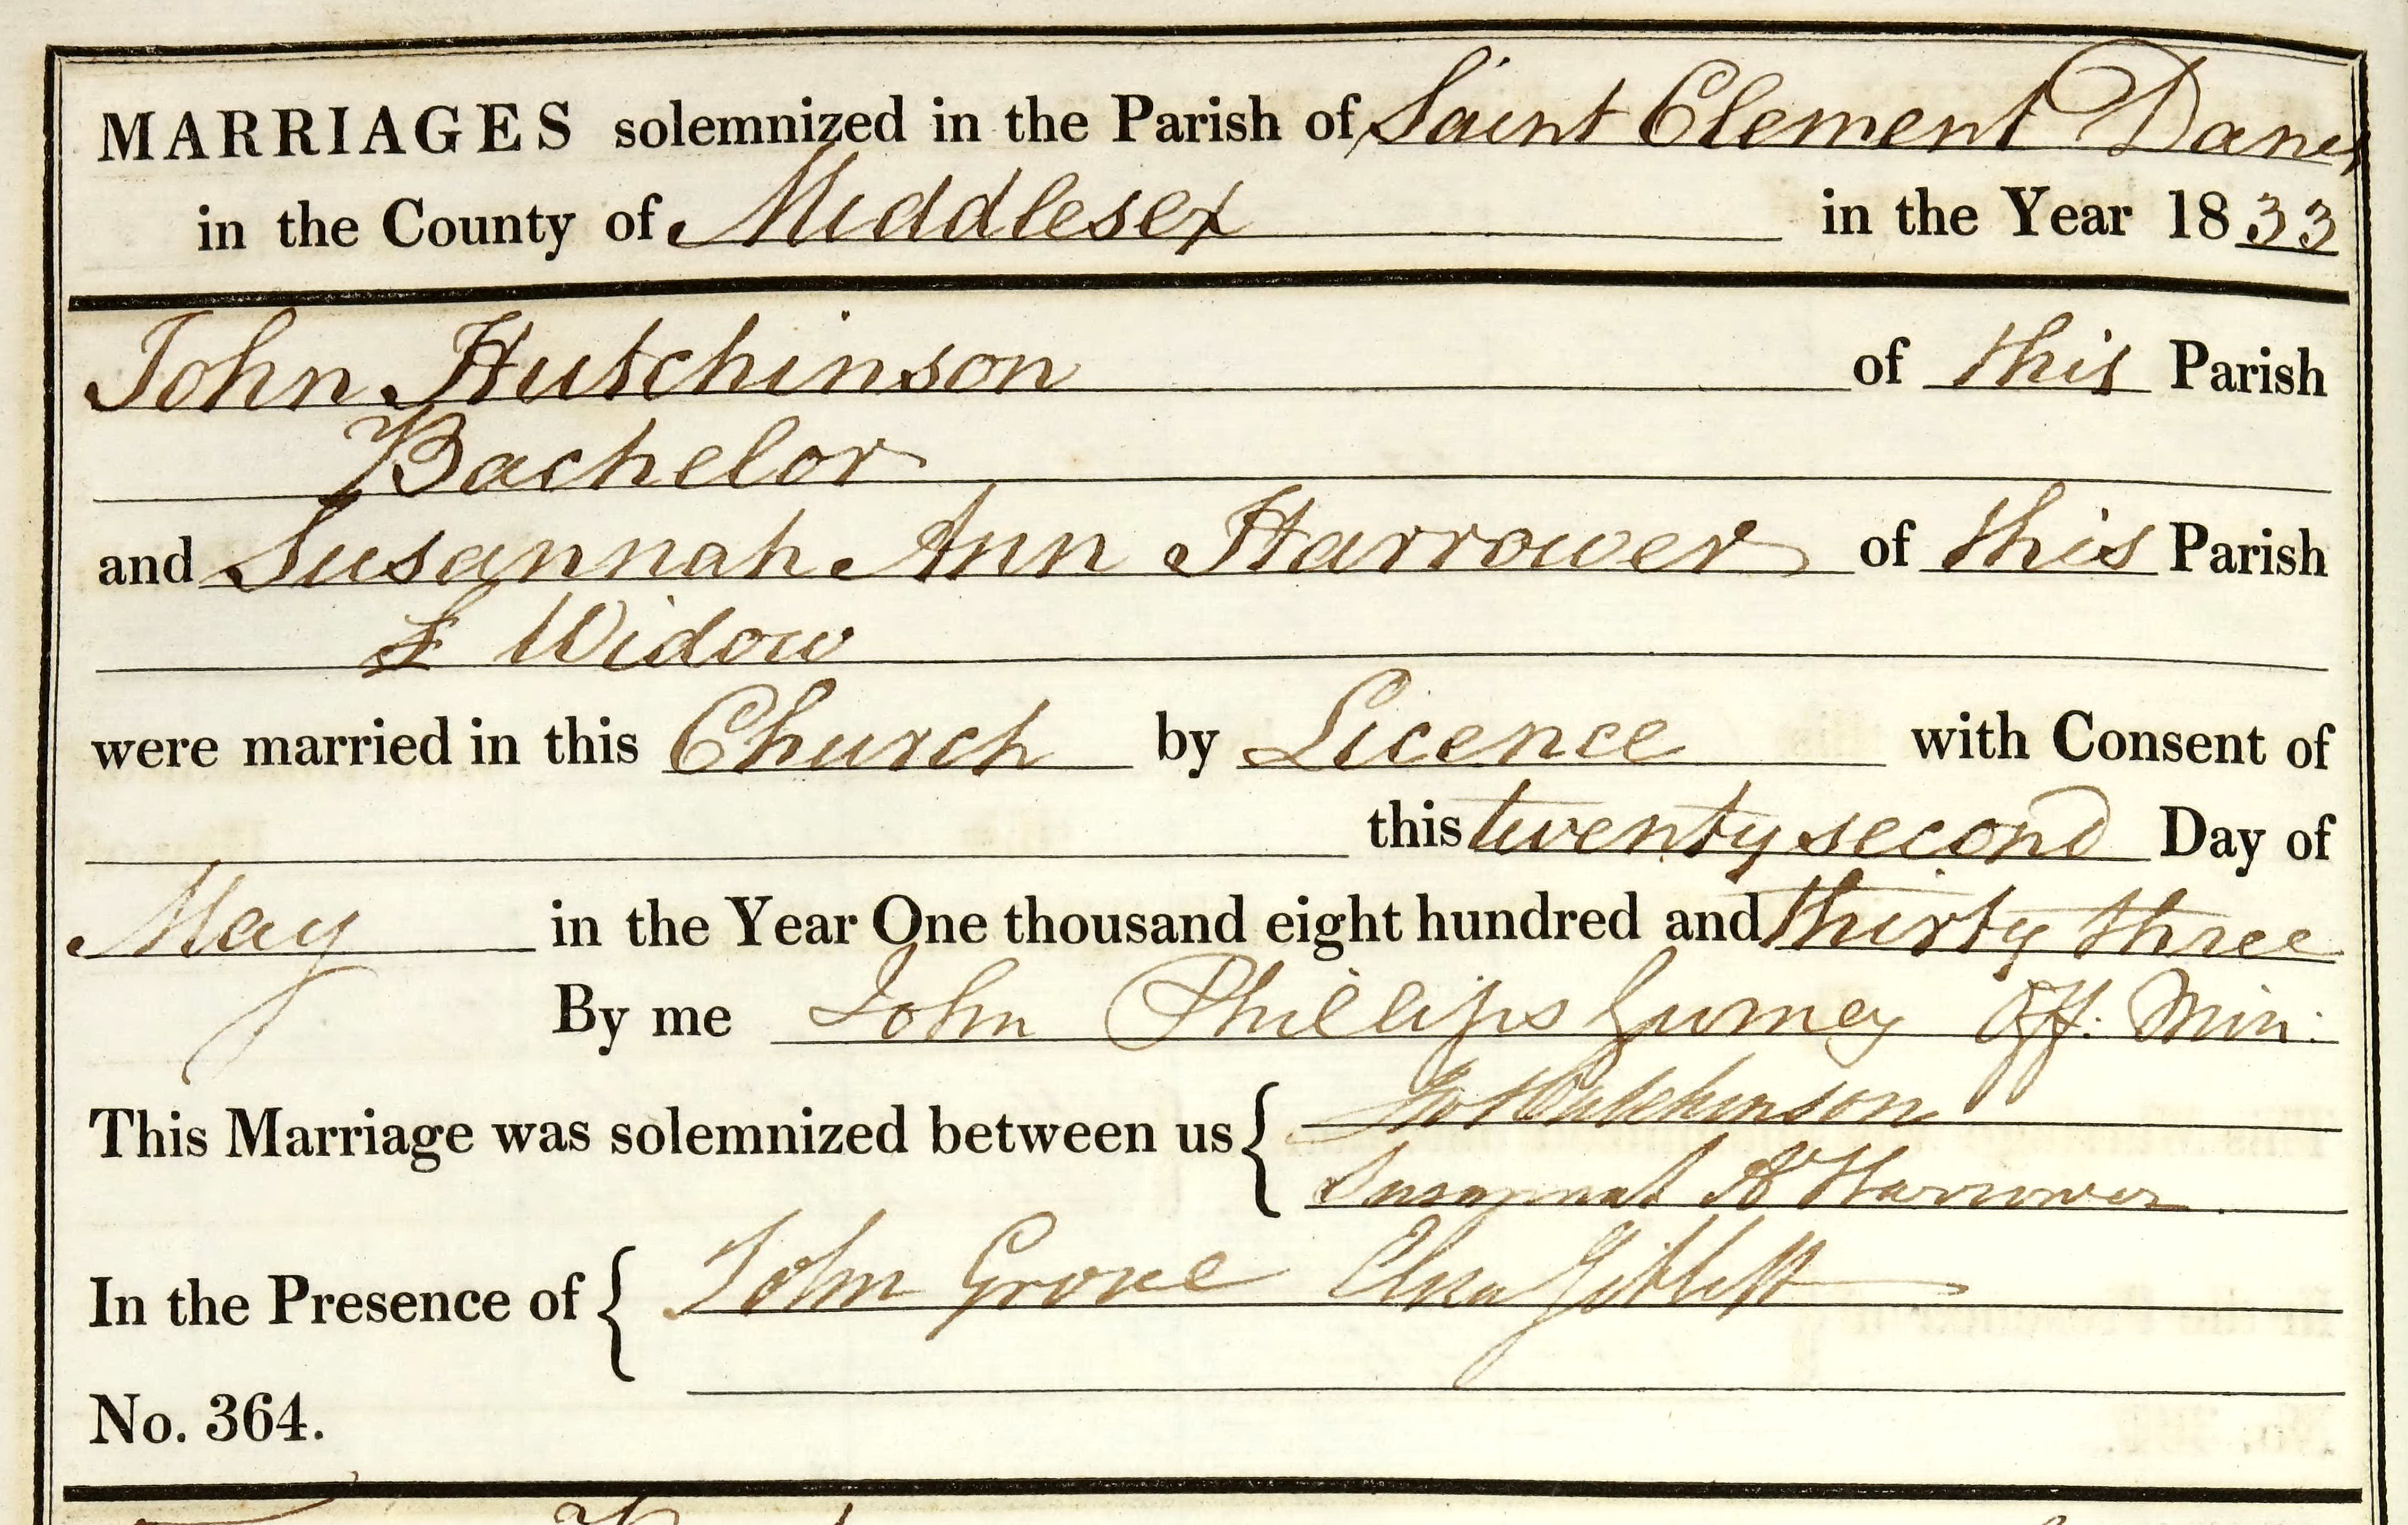 MARRIAGES solemnized in the Parish of Saint Clement Danes
in the County of Middlesex in the Year 1833
John Hutchinson of this Parish
Bachelor
and Susannah Ann Harrower of this Parish
Widow
were married in this Church by Licence with Consent of
this twenty second Day of
May in the Year One thousand eight hundred and thirty three
By me John Phillips Gurney Off: Min:
This Marriage was solemnized between us { Jno Hutchinson
Susannah A Harrower
In the Presence of { John Grove Giblett
No. 364.